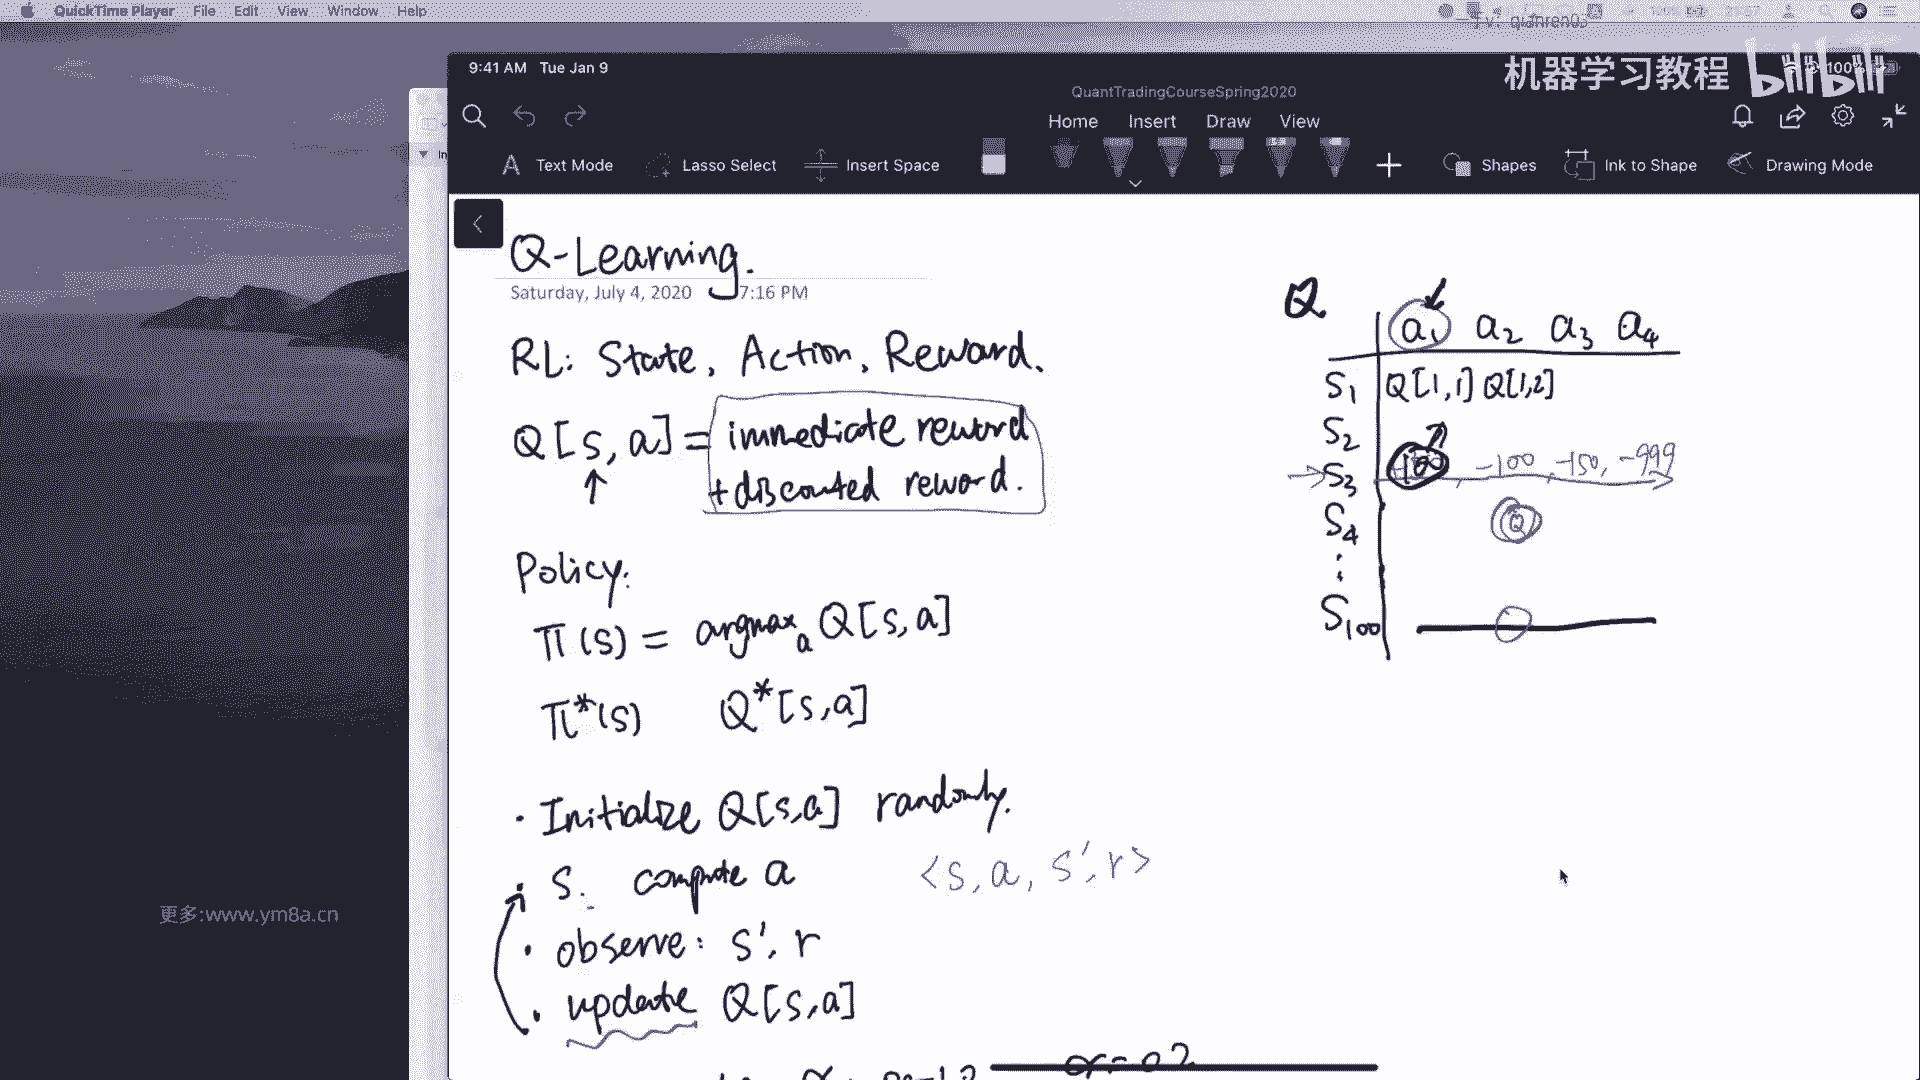 QuickTime Player File Edit View Window Help
9:41 AM Tue Jan 9
机器学习教程 bilibili
100%
QuantTradingCourseSpring2020
Home Insert Draw View
Text Mode Lasso Select Insert Space Shapes Ink to Shape Drawing Mode
Q-Learning.
Saturday, July 4, 2020 7:16 PM
RL: State, Action, Reward.
Q[s, a] = immediate reword
+ discounted reword.
Policy:
π(s) = argmax a Q[s, a]
π*(s) Q*[s,a]
· Initialize Q[s,a] randomly.
· s. compute a <s, a, s', r>
· observe: s', r
· update Q[s,a]
Q
a1 a2 a3 a4
S1 Q[1,1] Q[1,2]
S2
S3 -100, -150, -999
S4 Q
⋮
S100
更多:www.ym8a.cn